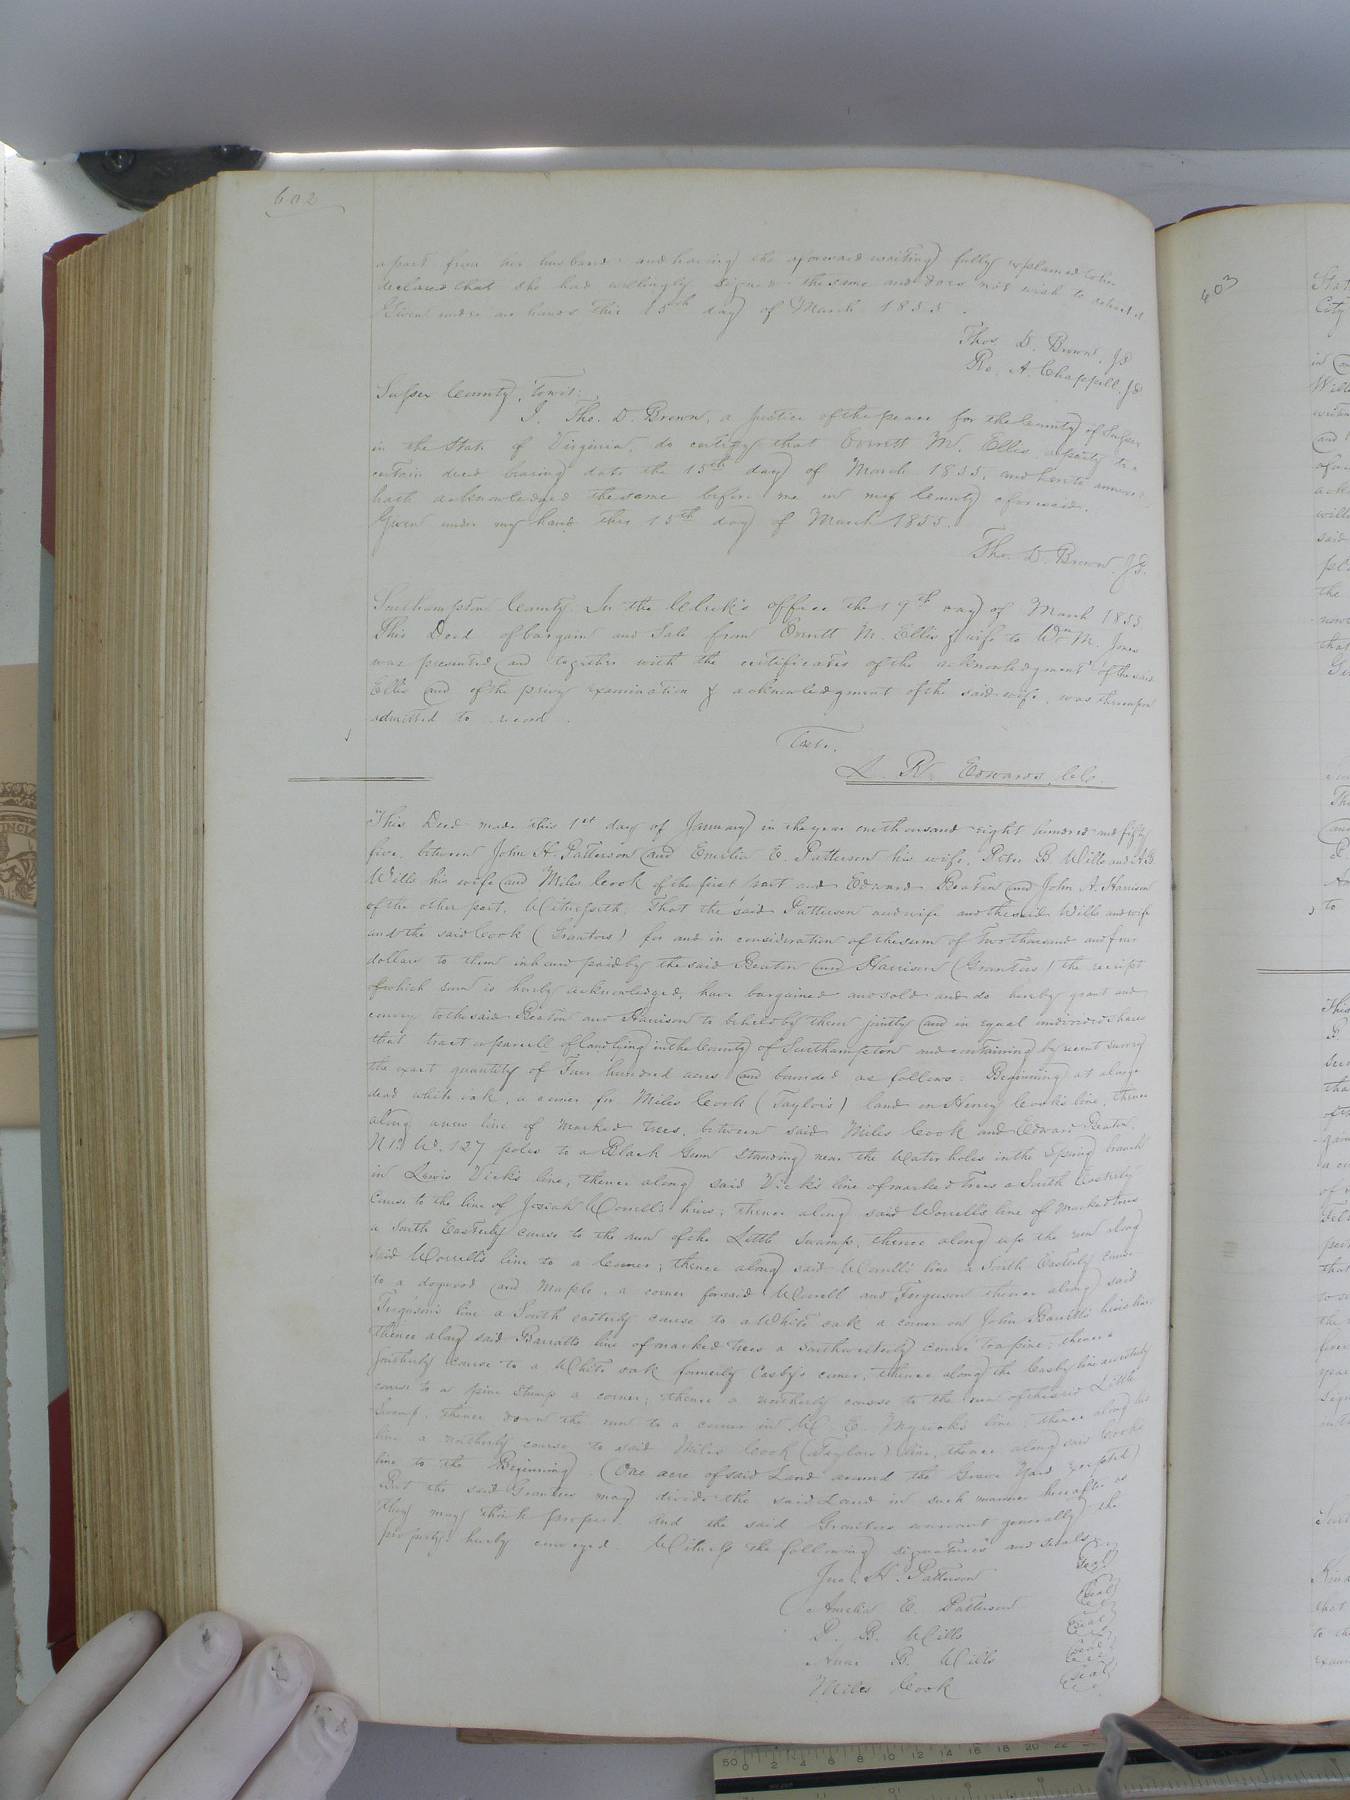 602
apart from her husband and having the aforesaid writing fully explained to her
declared that she had willingly signed the same and does not wish to retract it
Given under our hands this 15th day of March 1855.
Thos. D. Brown, J.P
Ro. A. Chappell. J.P
Sussex County, Towit:
I. Tho. D. Brown, a justice of the peace for the County of Sussex
in the State of Virginia, do certify that Everett M. Ellis, a party to a
certain deed bearing date the 15th day of March 1855, and hereto annexed
hath acknowledged the same before me in my County aforesaid.
Given under my hand this 15th day of March 1855.
Tho. D. Brown. J.P.
Southampton County. In the Clerk's office the 19th day of March 1855
This Deed of bargain and Sale from Everett M. Ellis & wife to Wm. M. Jones
was presented and together with the certificates of the acknowledgment of the said
Ellis and of the privy examination & acknowledgment of the said wife, was thereupon
admitted to record.
Teste.
L. R. Edwards, C.C.
This Deed made this 1st day of January in the year one thousand eight hundred and fifty
five, between John H. Patterson and Emelia E. Patterson his wife, Peter B Wills and A B
Wills his wife and Miles Cook of the first part and Edward Beaton and John A. Harrison
of the other part. Witnesseth: That the said Patterson and wife and the said Wills and wife
and the said Cook (Grantors) for and in consideration of the sum of Two thousand and four
dollars to them in hand paid by the said Beaton and Harrison (Grantees) the receipt
of which sum is hereby acknowledged, have bargained and sold and do hereby grant and
convey to the said Beaton and Harrison to be held by them jointly and in equal undivided shares
that tract or parcell of land lying in the County of Southampton and containing by recent survey
the exact quantity of Four hundred acres and bounded as follows: Beginning at a large
dead white oak, a corner for Miles Cook (Taylor's) land on Henry Cook's line, thence
along a new line of marked trees, between said Miles Cook and Edward Beaton,
W. 127 poles to a Black Gum standing near the Water holes in the Spring branch
in Lewis Vick's line, thence along said Vick's line of marked trees a South Easterly
Course to the line of Josiah Worrell's heirs; thence along said Worrell's line of marked trees
a South Easterly course to the run of the Little Swamp, thence along up the run along
said Worrell's line to a Corner; thence along said Worrell's line a South Easterly course
to a dogwood and Maple, a corner for said Worrell and Ferguson thence along said
Ferguson's line a South easterly course to a White oak a corner on John Barrett's heirs line
thence along said Barrett's line of marked trees a southwesterly course to a pine; thence a
Southerly course to a White oak formerly Casby's corner; thence along the Casby line a westerly
course to a pine Stump a corner; thence a northerly course to the run of the said Little
Swamp. thence down the run to a corner in W. E. Myrick's line; thence along his
line a northerly course to said Miles Cook (Taylor's) line, thence along said Cook's
line to the Beginning. (One acre of said Land around the Grave Yard excepted)
But the said Grantees may divide the said Land in such manner hereafter as
they may think proper. And the said Grantors warrant generally the
property hereby conveyed. Witness the following signatures and seals.
Jno. H. Patterson Seal
Amelia E. Patterson Seal
P. B. Wills Seal
Anne B. Wills Seal
Miles Cook Seal
603